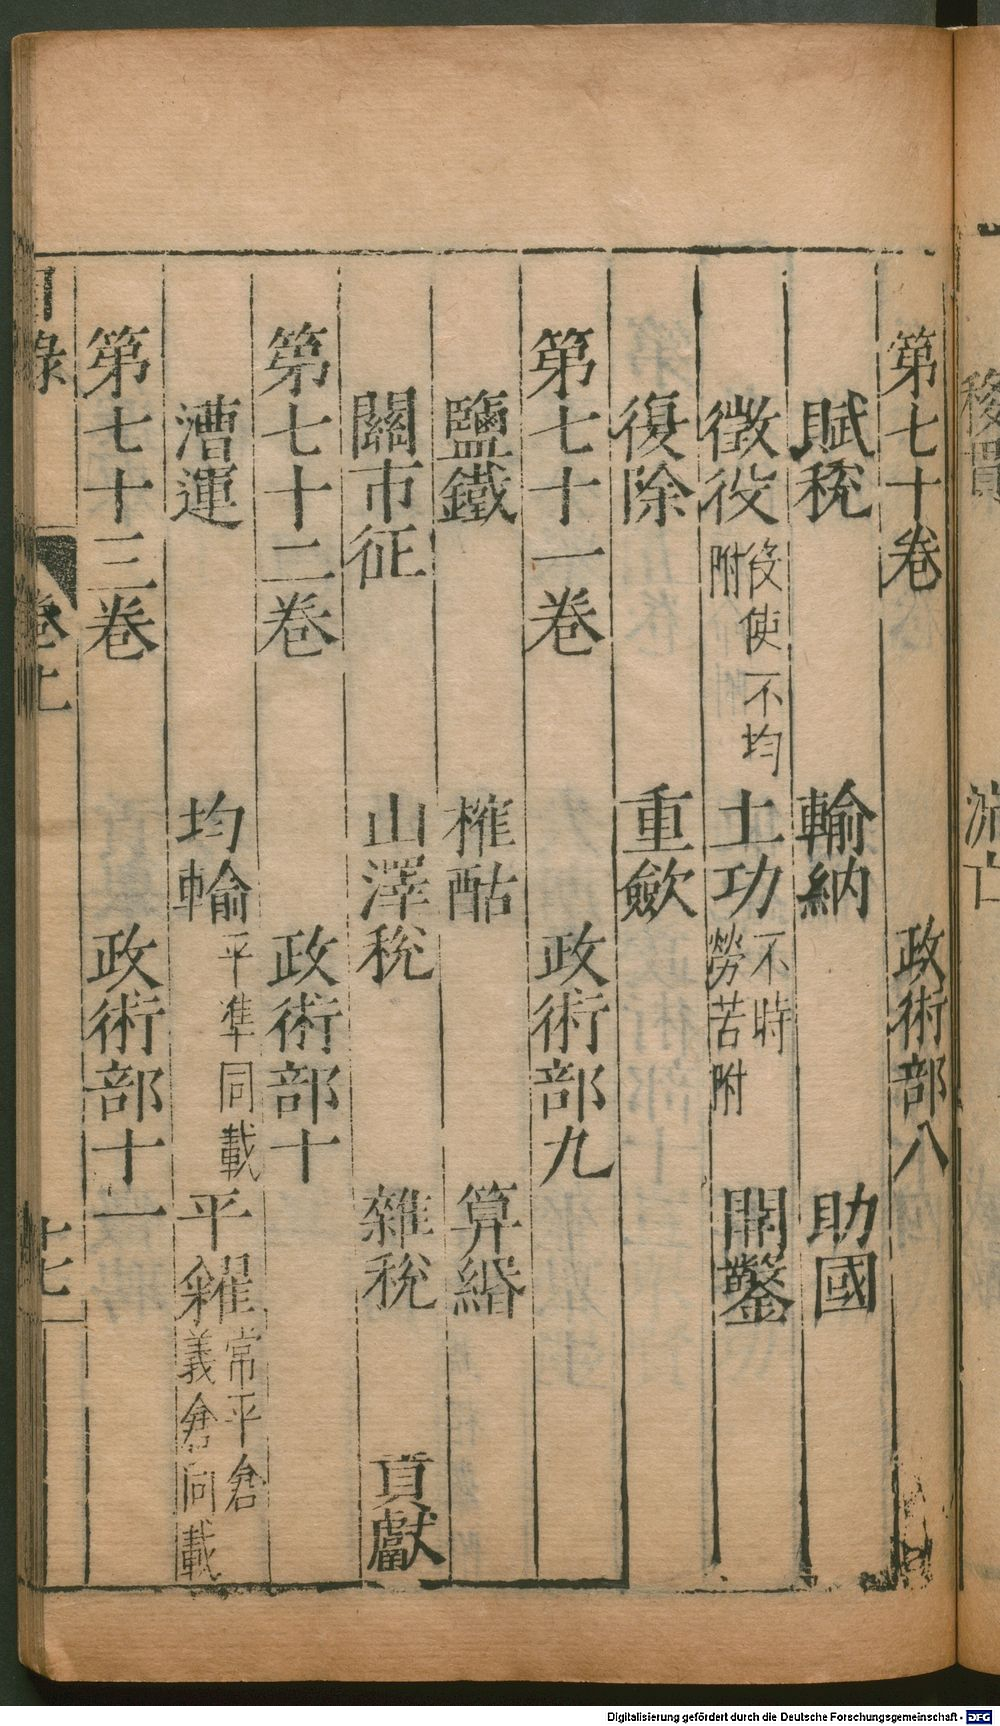 第七十卷 政術部八
賦稅 輸納 助國
徵役 役使不均附 土功 不時勞苦附 開鑿
復除 重斂
第七十一卷 政術部九
鹽鐵 榷酤 算緡
關市征 山澤稅 雜稅 貢獻
第七十二卷 政術部十
漕運 均輸 平準同載 平糴 常平倉義倉同載
第七十三卷 政術部十一
目錄 卷上 十七
Digitalisierung gefördert durch die Deutsche Forschungsgemeinschaft - DFG